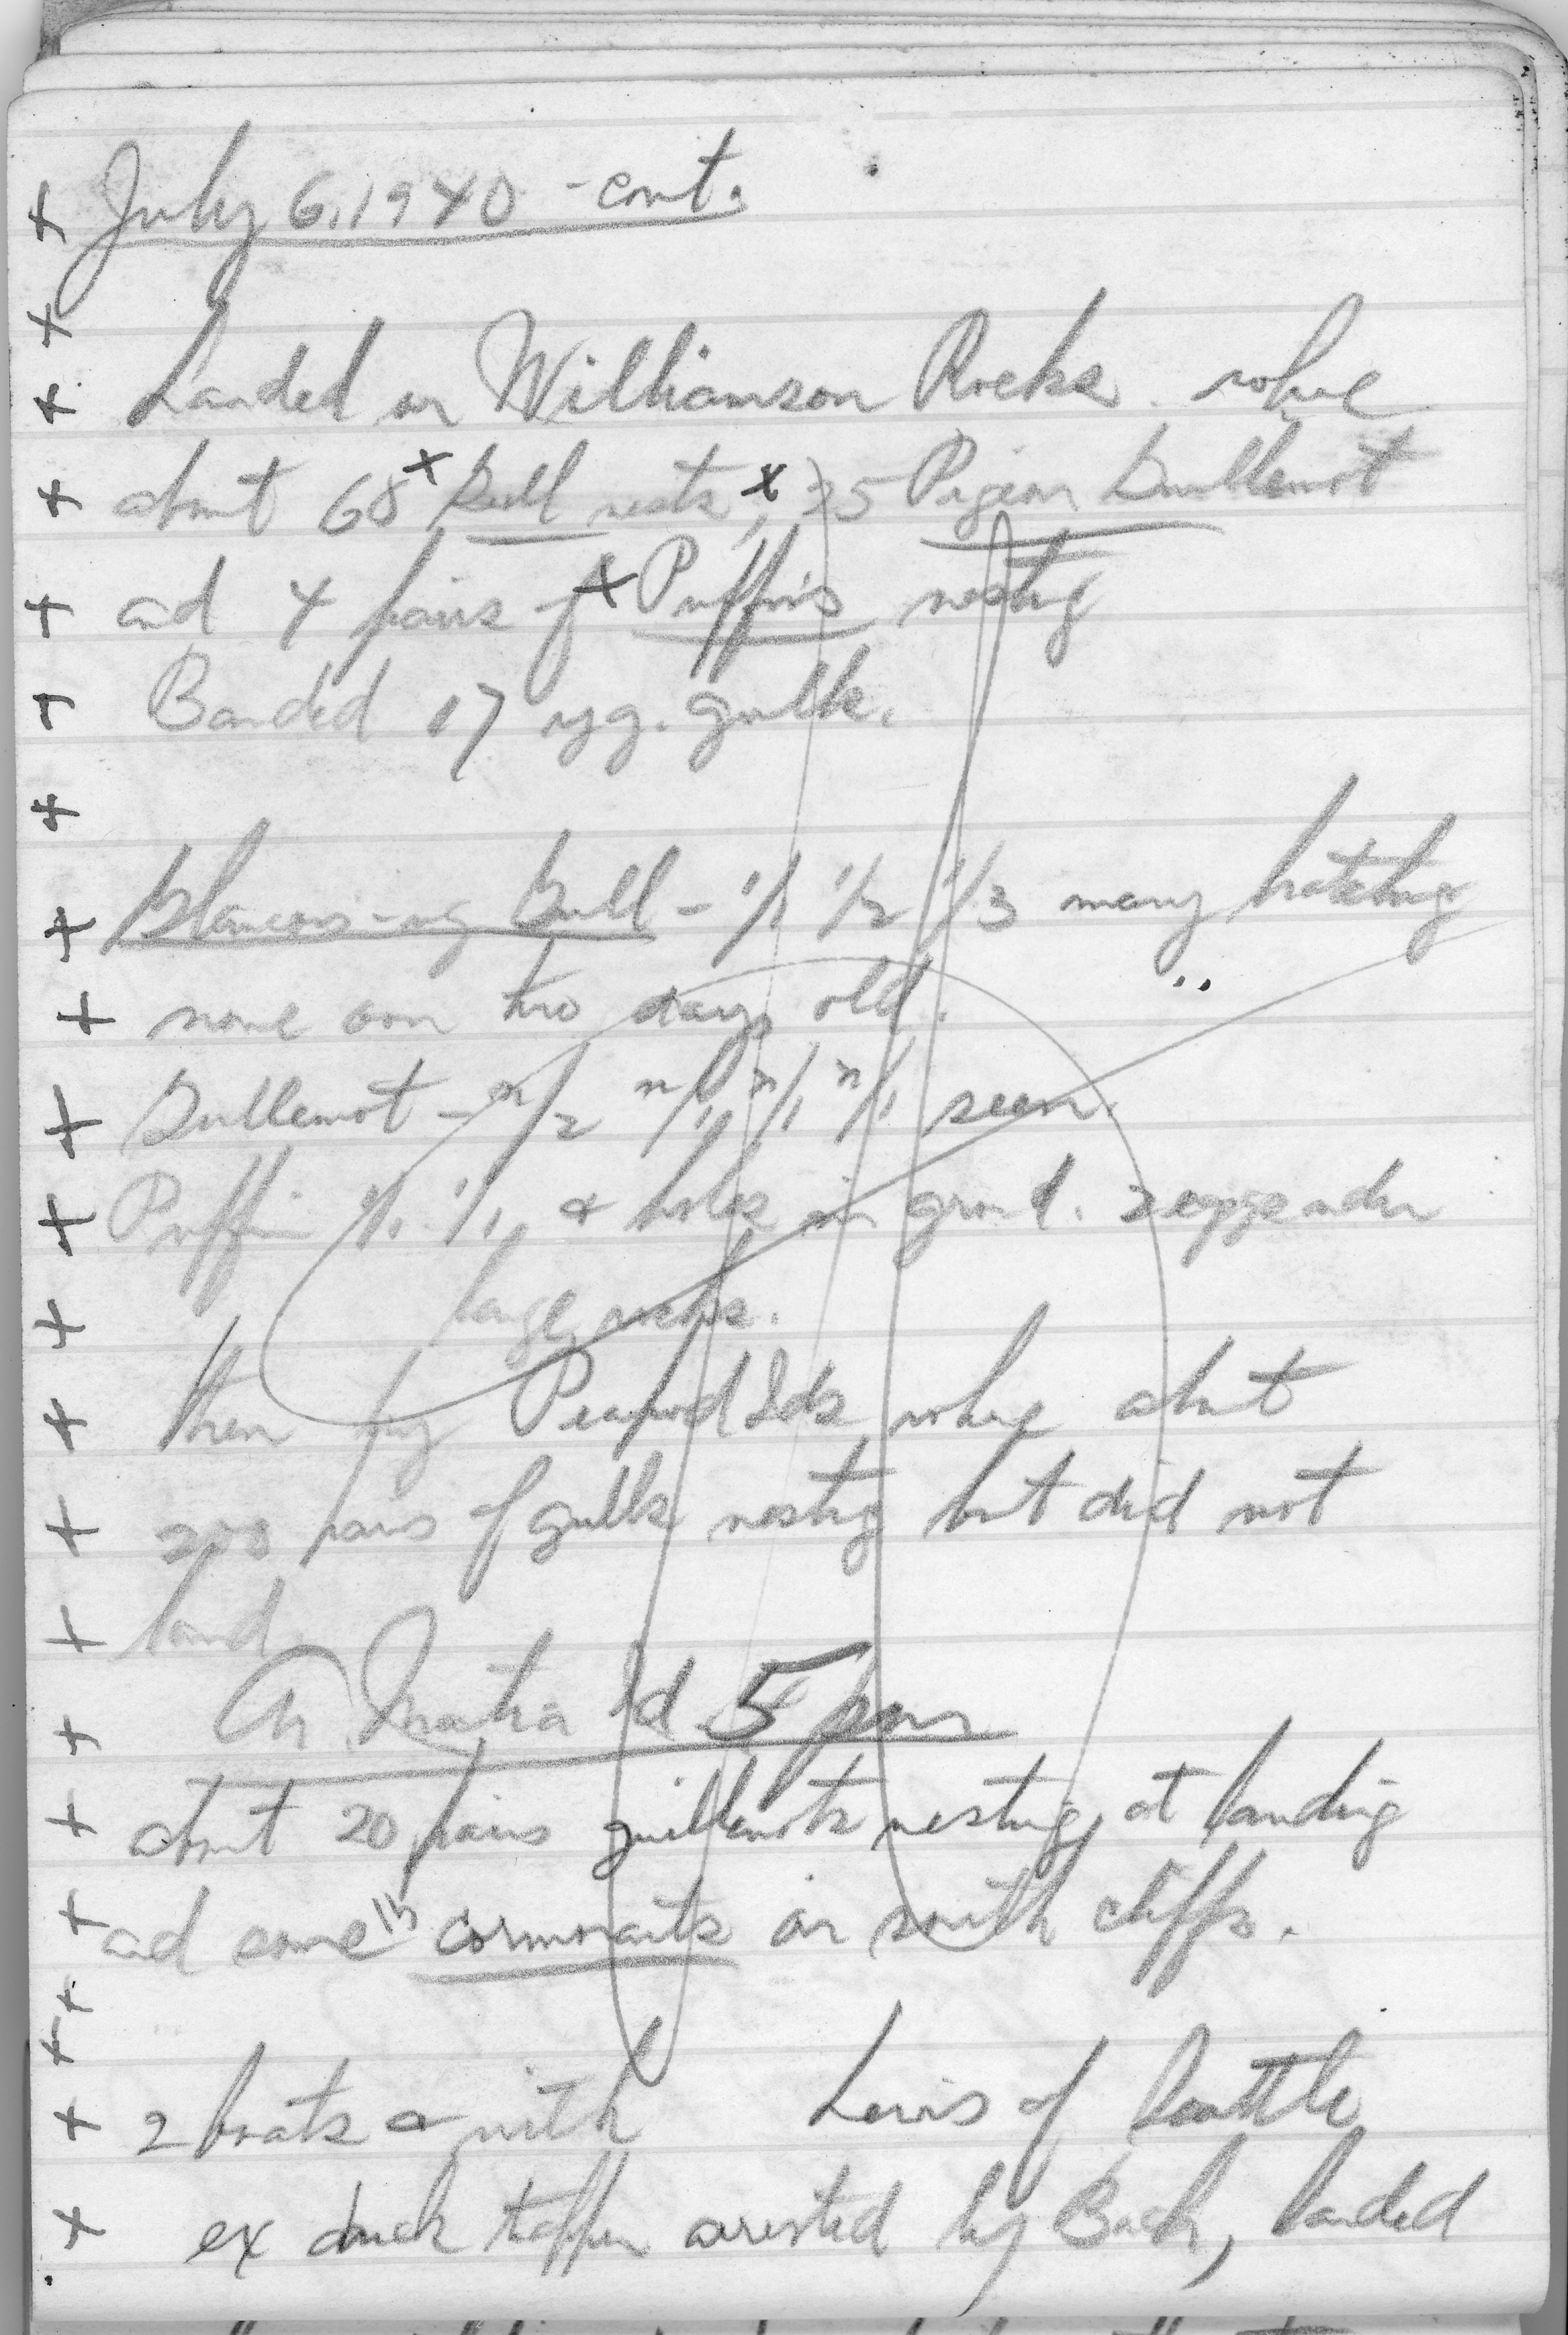 July 6, 1940 - cont.
Landed on Williamson Rocks. where
about 68 x Gull nests, x 35 Pigeon Guillemot
and 4 pairs of x Puffins nesting
Banded 17 yg. gulls.
Glaucous-wg Gull - 1/1 1/2 1/3 many hatching
none over two days old.
Guillemot - n/2 n/1, n/1 n/1 seen.
Puffin 1/1, 1/1, & holes in ground. 2 eggs under
large rocks.
then by Peapod Ids where about
200 pairs of gulls nesting but did not
land.
Ar. Matia Id 5 pm
about 20 pairs guillemots nesting, at landing
and some cormorants on south cliffs.
2 boats & with Lewis of Seattle
ex duck arrested by Bach, landed